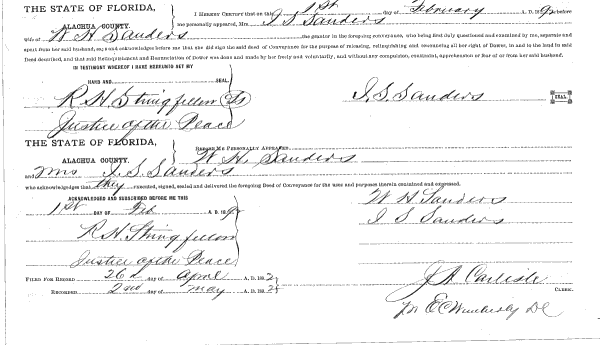 THE STATE OF FLORIDA,
ALACHUA COUNTY.
I HEREBY CERTIFY that on this 1st day of February A. D. 189 before
me personally appeared, Mrs I. S. Sanders
wife of W H Sanders the grantor in the foregoing conveyance, who being first duly questioned and examined by me, separate and
apart from her said husband, says and acknowledges before me that she did sign the said deed of Conveyance for the purpose of releasing, relinquishing and renouncing all her right of Dower, in and to the land in said
Deed described, and that said Relinquishment and Renunciation of Dower was done and made by her freely and voluntarily, and without any compulsion, constraint, apprehension or fear of or from her said husband.
IN TESTIMONY WHEREOF I HAVE HEREUNTO SET MY
HAND AND SEAL.
R H Stringfellow
I. S. Sanders SEAL.
Justice of the Peace
THE STATE OF FLORIDA,
ALACHUA COUNTY.
BEFORE ME PERSONALLY APPEARED W. H. Sanders
and Mrs I. S. Sanders
who acknowledges that they executed, signed, sealed and delivered the foregoing Deed of Conveyance for the uses and purposes therein contained and expressed.
ACKNOWLEDGED AND SUBSCRIBED BEFORE ME THIS
1st DAY OF Feb A. D. 189
W H Sanders
I S Sanders
R. H. Stringfellow
Justice of the Peace
FILED FOR RECORD 26 day of April A. D. 189
J A Carlisle
RECORDED 2nd day of May A. D. 189 CLERK.
E C Wimberly DC